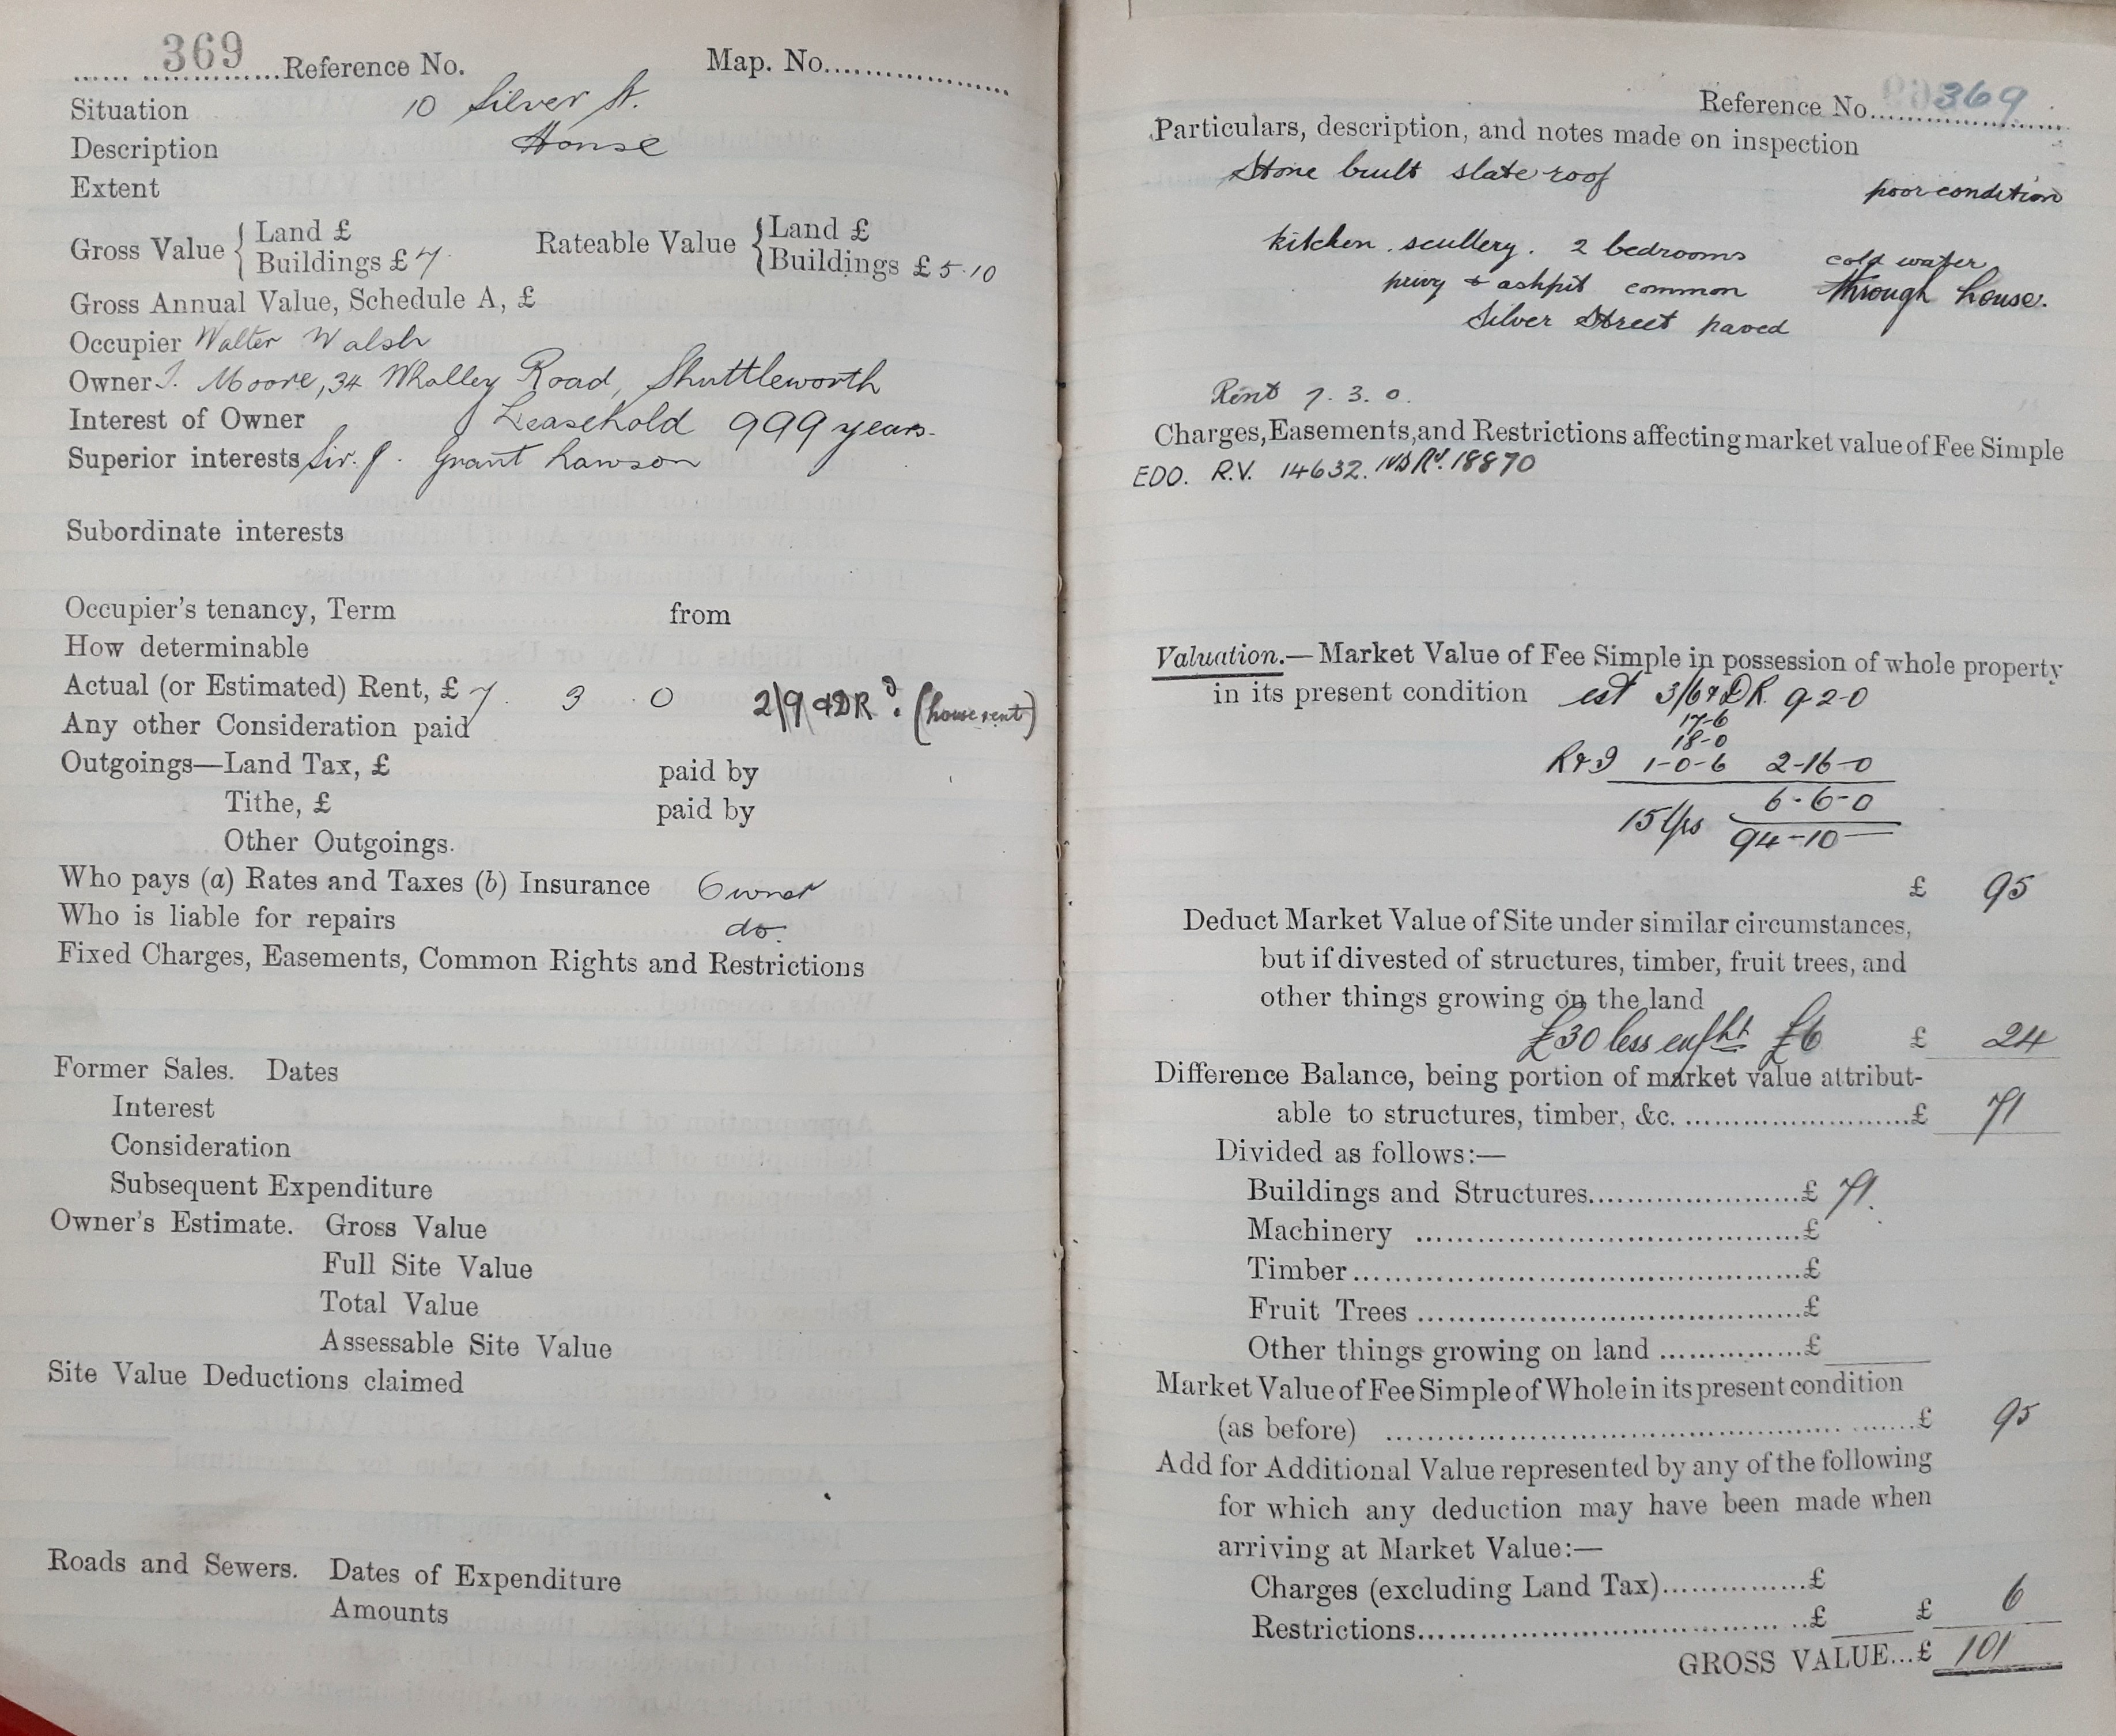 369 Reference No. Map. No.
Situation 10 Silver St.
Description House
Extent
Gross Value { Land £ Rateable Value { Land £
Buildings £ 7. Buildings £ 5.10
Gross Annual Value, Schedule A, £
Occupier Walter Walsh
Owner Moore, 34 Whalley Road, Shuttleworth
Interest of Owner Leasehold 999 years.
Superior interests Sir. J. Grant Lawson
Subordinate interests
Occupier's tenancy, Term from
How determinable
Actual (or Estimated) Rent, £ 7. 3. 0 2/9 & DR. (house rent)
Any other Consideration paid
Outgoings—Land Tax, £ paid by
Tithe, £ paid by
Other Outgoings.
Who pays (a) Rates and Taxes (b) Insurance Owner
Who is liable for repairs do.
Fixed Charges, Easements, Common Rights and Restrictions
Former Sales. Dates
Interest
Consideration
Subsequent Expenditure
Owner's Estimate. Gross Value
Full Site Value
Total Value
Assessable Site Value
Site Value Deductions claimed
Roads and Sewers. Dates of Expenditure
Amounts
Reference No. 369
Particulars, description, and notes made on inspection
Stone built slate roof poor condition
kitchen. scullery. 2 bedrooms cold water
privy & ashpit common through house.
Silver Street paved
Rent 7. 3. 0.
Charges, Easements, and Restrictions affecting market value of Fee Simple
EDO. R.V. 14632. 18870
Valuation.—Market Value of Fee Simple in possession of whole property
in its present condition est 3/6 & DR. 9-2-0
17-6
18-0
R & I 1-0-6 2-16-0
6-6-0
15 Yrs 94-10-
£ 95
Deduct Market Value of Site under similar circumstances,
but if divested of structures, timber, fruit trees, and
other things growing on the land
£30 less enfht £6 £ 24
Difference Balance, being portion of market value attribut-
able to structures, timber, &c. £ 71
Divided as follows:—
Buildings and Structures £ 71.
Machinery £
Timber £
Fruit Trees £
Other things growing on land £
Market Value of Fee Simple of Whole in its present condition
(as before) £ 95
Add for Additional Value represented by any of the following
for which any deduction may have been made when
arriving at Market Value:—
Charges (excluding Land Tax) £
Restrictions £ £ 6
GROSS VALUE...£ 101